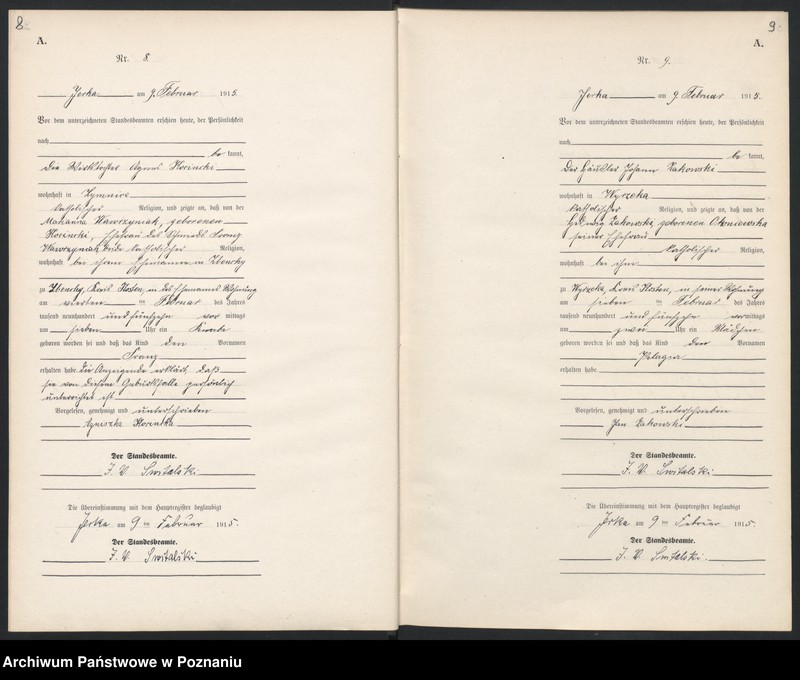 8
A.
Nr. 8.
Jerka am 9. Februar 1915.
Vor dem unterzeichneten Standesbeamten erschien heute, der Persönlichkeit
nach
be kannt,
die Agnes Florincki
wohnhaft in
katholischer Religion, und zeigte an, daß von der
Marianna Wawrzyniak, geborenen
Florincki, Ehefrau des Schmieds Franz
Wawrzyniak, beide katholischer Religion,
wohnhaft bei ihrem Ehemanne in Zbenchy
zu Zbenchy, Kreis Kosten, in des Ehemannes Wohnung
am vierten ten Februar des Jahres
tausend neunhundert und fünfzehn vor mittags
um sieben Uhr ein Knabe
geboren worden sei und daß das Kind den Vornamen
Franz
erhalten habe. Die Anzeigende erklärt, daß
sie von diesem Geburtsfalle persönlich
unterrichtet ist.
Vorgelesen, genehmigt und unterschrieben
Agnieszka
Der Standesbeamte.
J. V. Switalski
Die Übereinstimmung mit dem Hauptregister beglaubigt
Jerka am 9 ten Februar 1915.
Der Standesbeamte.
J. V. Switalski
9
A.
Nr. 9.
Jerka am 9. Februar 1915.
Vor dem unterzeichneten Standesbeamten erschien heute, der Persönlichkeit
nach
be kannt,
Der Häusler Johann Zakowski
wohnhaft in Wyrzeka
katholischer Religion, und zeigte an, daß von der
Hedwig Zakowski, geborenen
seiner Ehefrau
katholischer Religion,
wohnhaft bei ihm
zu Wyrzeka, Kreis Kosten, in seiner Wohnung
am sieben ten Februar des Jahres
tausend neunhundert und fünfzehn vormittags
um zwei Uhr ein Mädchen
geboren worden sei und daß das Kind den Vornamen
Pelagia
erhalten habe
Vorgelesen, genehmigt und unterschrieben
Jan Zakowski
Der Standesbeamte.
J. V. Switalski
Die Übereinstimmung mit dem Hauptregister beglaubigt
Jerka am 9 ten Februar 1915.
Der Standesbeamte.
J. V. Switalski
Archiwum Państwowe w Poznaniu